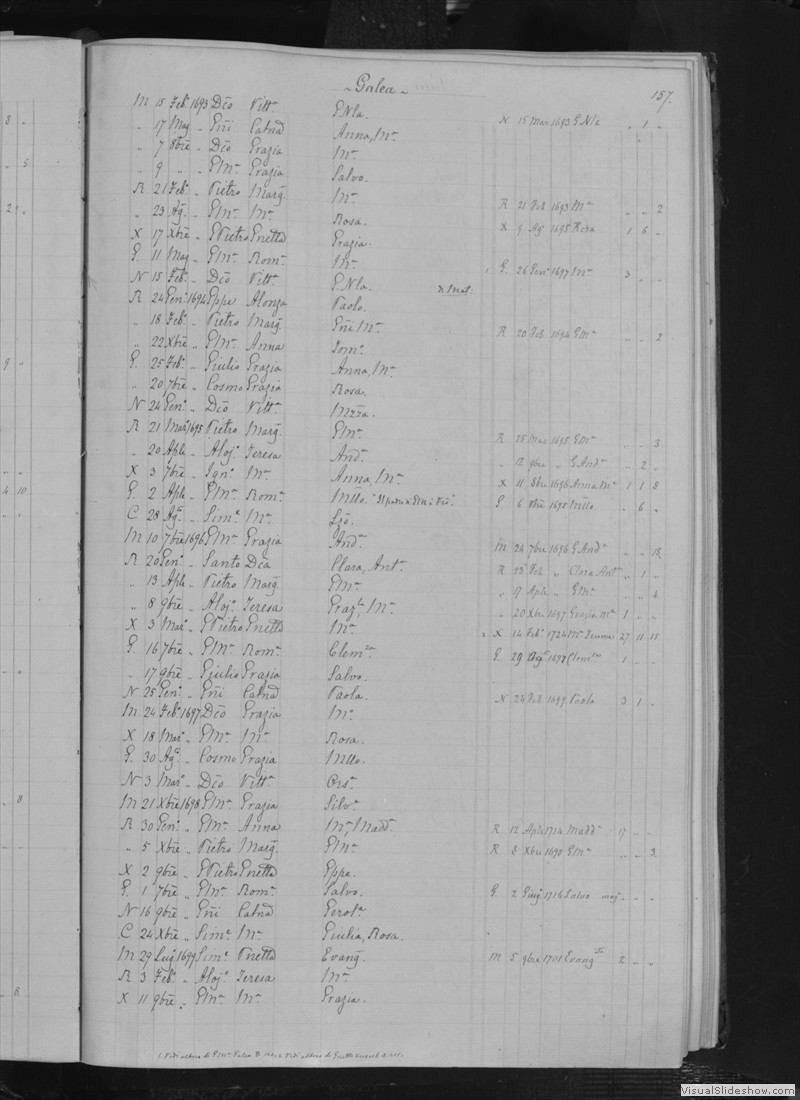 Galea
157.
M 15 Feb. 1693 Dco Vitt.a E. Nla. N 15 Mar 1693 G. Nla " 1 "
" 17 Mag. " Eñi Catna Anna, M.a
" 7 8bre " Dco Grazia M.a
" 9 " " GM.a Grazia Salvo.
R 21 Feb. " Pietro Marg. M.a R 21 Feb 1693 M.a " " 2
" 23 Ag. " GM.a M.a Rosa. X 9 Ag. 1695 Rosa 1 6 "
X 17 Xbre " GPietro Gnetta Grazia.
G. 11 Mag. " GM.a Rom.a M.a 1 G. 26 Gen. 1697 M.a 3 " "
N 15 Feb. " Dco Vitt.a G. Nla.
R 24 Gen. 1694 Gppe Alonza Paolo.
" 18 Feb. " Pietro Marg. Eñi M.a R 20 Feb 1694 GM.a " " 2
" 22 Xbre " GM.a Anna Dom.a
G. 25 Feb. " Giulio Grazia Anna, M.a
" 20 7bre " Cosmo Grazia Rosa.
N 24 Gen. " Dco Vitt.a Mzza.
R 21 Mar. 1695 Pietro Marg. GM.a R 25 Mar 1695 GM.a " " 3
" 20 Aple " Aloj. Teresa And.a " 12 9bre " G And.a " 2 "
X 3 7bre " Ign. M.a Anna, M.a X 11 8bre 1696 Anna M.a 1 1 8
G. 2 Aple " GM.a Rom.a Mllo. G 6 8bre 1695 Mllo " 6 "
C 28 Ag. " Sim.e M.a Lzo.
M 10 7bre 1696 GM.a Grazia And.a M 24 7bre 1696 G And.a " " 15
R 20 Gen. " Santo Dca Clara, Ant.a R 23 Feb " Clara Ant.a " 1 "
" 13 Aple " Pietro Marg. GM.a " 17 Aple " GM.a " " 6
" 8 9bre " Aloj. Teresa Graz.a, M.a " 20 Xbre 1697 Grazia M.a 1 " "
X 3 Mar. " GPietro Gnetta M.a 2 X 14 Feb. 1724 M.a 27 11 15
G. 16 7bre " GM.a Rom.a Clem.za G. 29 1697 Clem.za 1 " "
" 17 9bre " Giulio Grazia Salvo.
N 25 Gen. " Eñi Catna Paola. N 24 Feb 1699 Paola 3 1 "
M 24 Feb. 1697 Dco Grazia M.a
X 18 Mar. " GM.a M.a Rosa.
G. 30 Ag. " Cosmo Grazia Mllo.
N 3 Mar. " Dco Vitt.a Ors.a
M 21 Xbre 1698 GM.a Grazia Silv.a
R 30 Gen. " GM.a Anna M.a, Madd.a R 12 Aple 1714 Madd.a 17 " "
" 5 Xbre " Pietro Marg. GM.a R 8 Xbre 1698 GM.a " " 3
X 2 9bre " GPietro Gnetta Gppa.
G. 1 7bre " GM.a Rom.a Salvo. G 2 Giug. 1716 Salvo mag. " "
N 16 9bre " Eñi Catna Gerol.a
C 24 Xbre " Sim.e M.a Giulia, Rosa.
M 29 Lug. 1699 Sim.e Pnetta Evang. M 5 9bre 1701 Evang. 2 " "
R 3 Feb. " Aloj. Teresa M.a
X 11 9bre " GM.a M.a Grazia.
VisualSlideshow.com